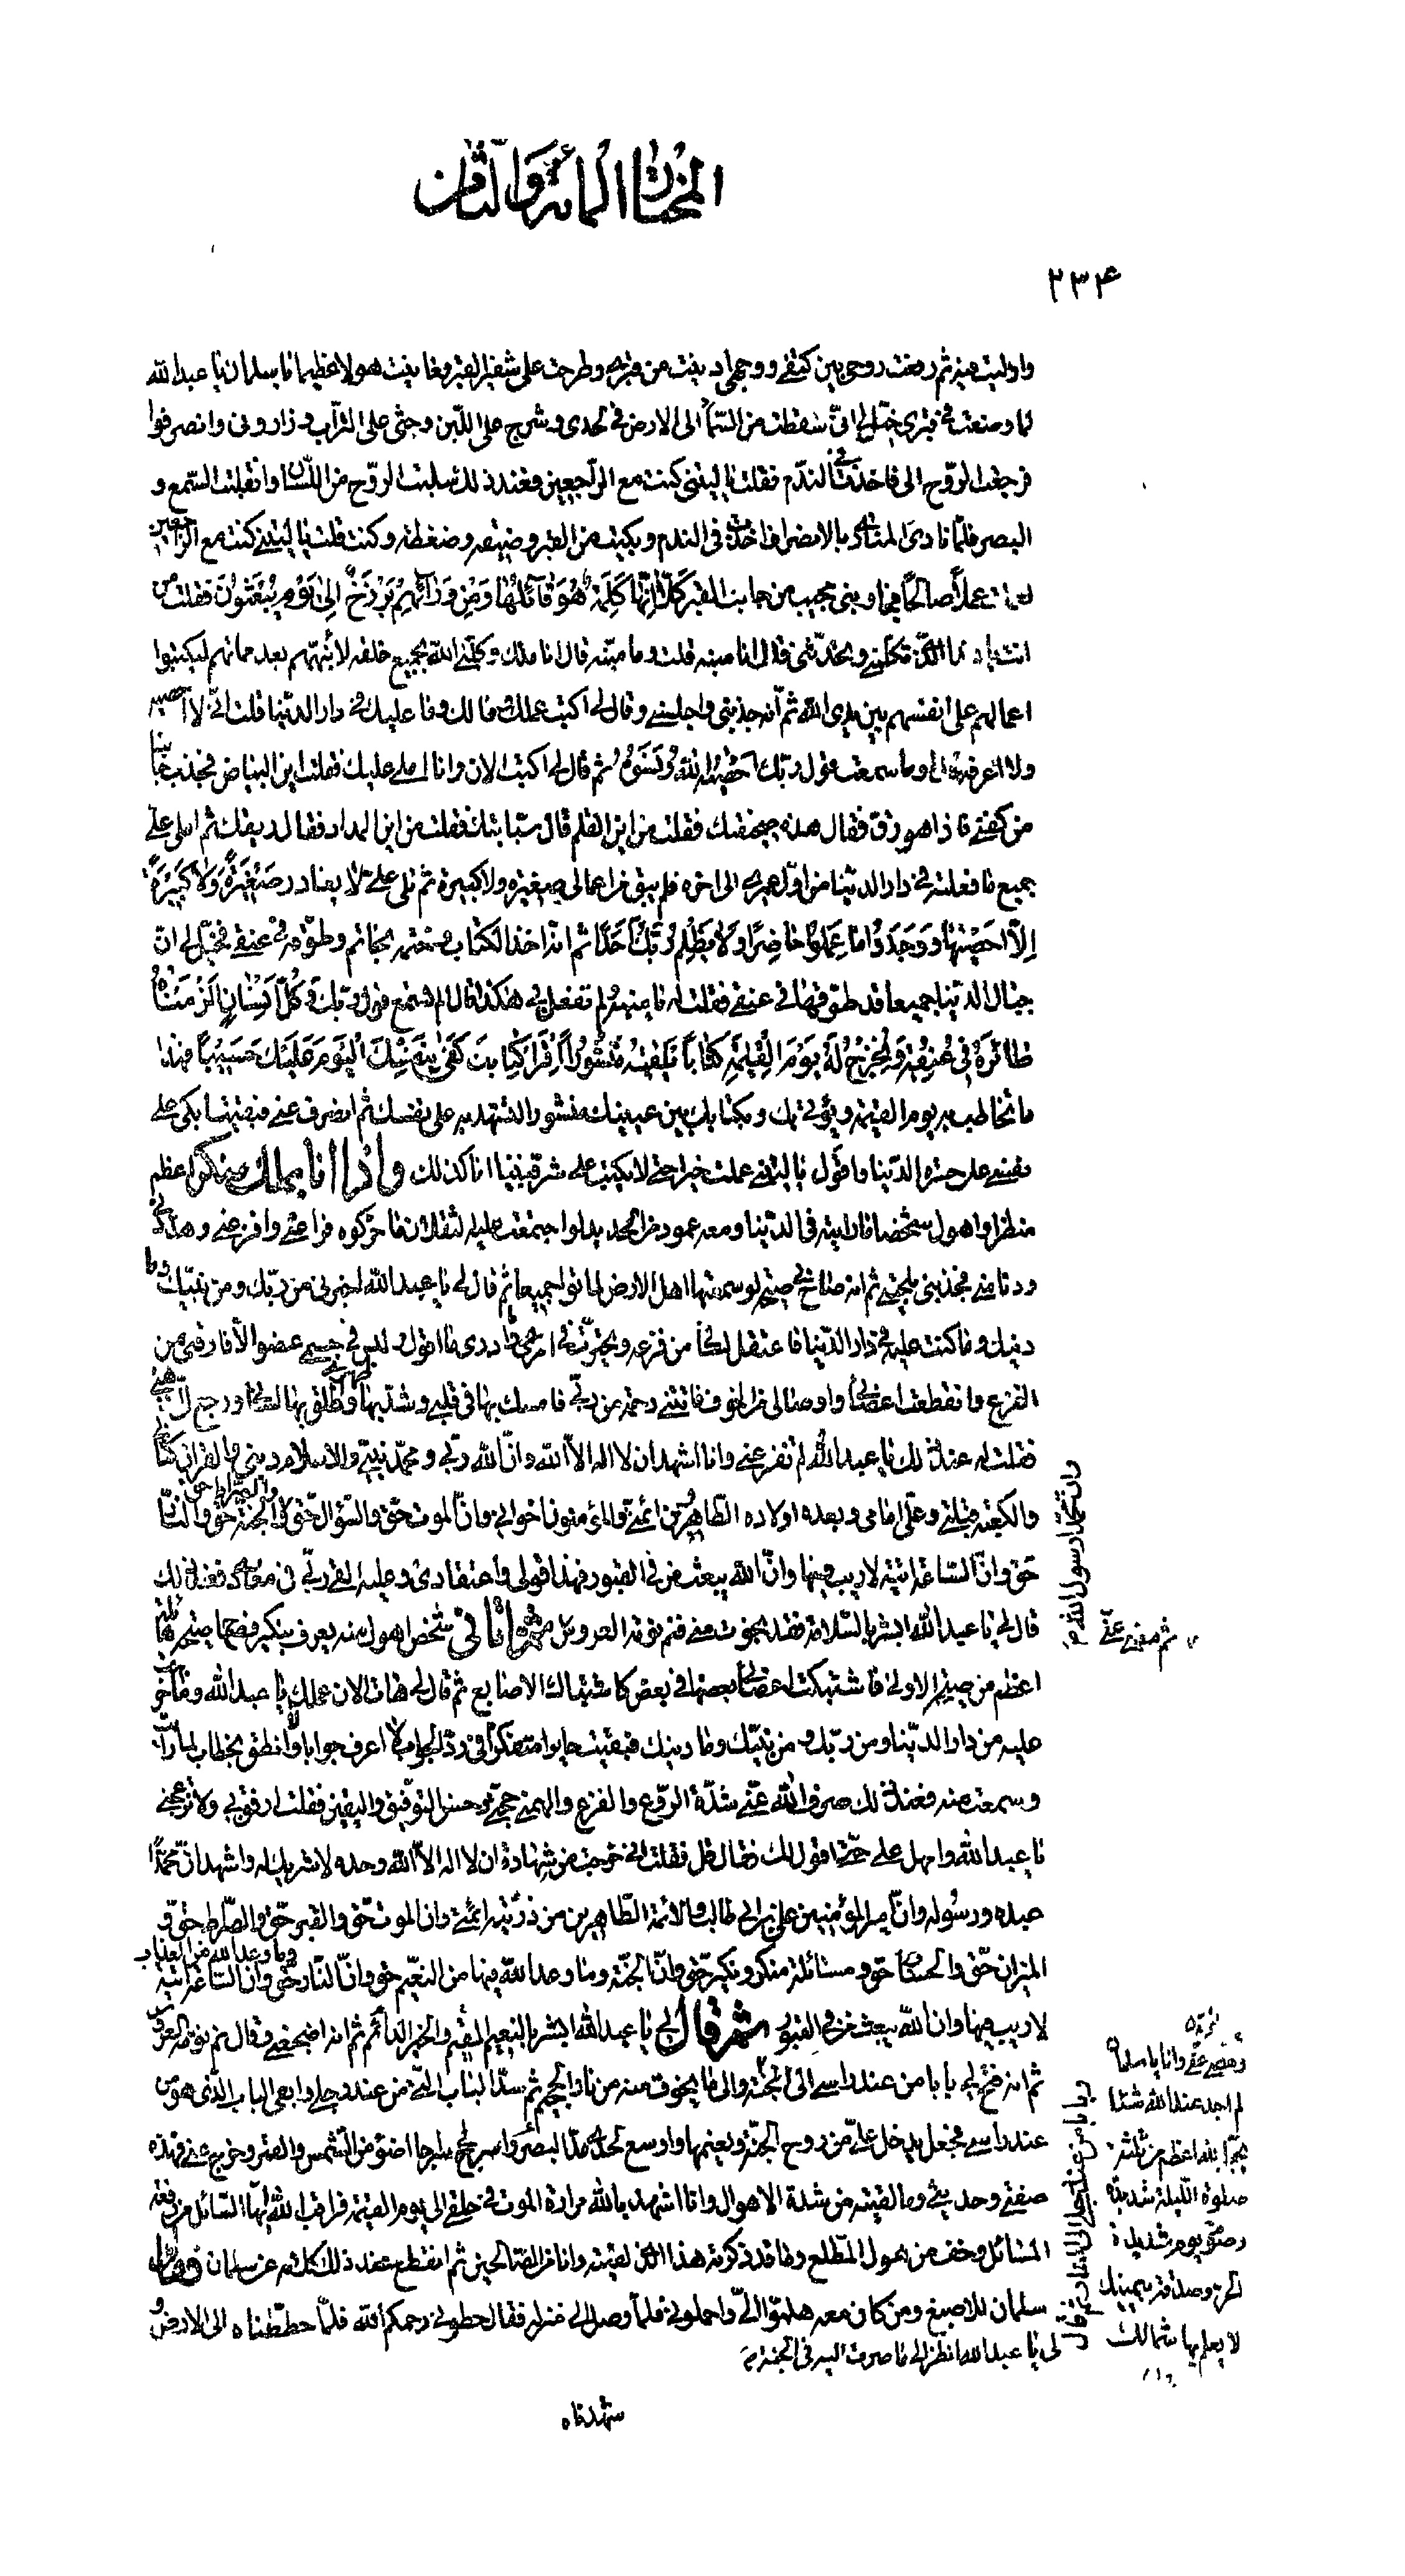 المختار المائة والثامن
٢٣۴
وادليت منه ثم رفعت روحي بين كتفي ووجهي ادنيت من قبري وطرحت على شفير القبر فعاينت هولا عظيما يا سلمان يا عبد الله
لما وضعت في قبري خيّل لي انّي سقطت من السّماء الى الارض في لحدي وشرج علىّ اللّبن وحثى علىّ التّراب وزاروني وانصرفوا
فرجعت الرّوح الى فاخذت في النّدم فقلت يا ليتني كنت مع الرّاجعين فعند ذلك سلبت الرّوح من اللّسان وانقلبت السّمع و
البصر فلمّا نادى المنادى بالانصراف اخذت في الندم وبكيت من القبر وضيقه وضغطه وكنت قلت يا ليتني كنت مع الرّاجعين
لعملت عملاً صالحًا فجاوبني مجيب من جانب القبر كَلّا اِنَّها كَلِمَةٌ هُوَ قائِلُها وَمِنْ وَرائِهِمْ بَرْزَخٌ اِلى يَوْمِ يُبْعَثُونَ فقلت من
انت يا هذا الّذي تكلّمني وتحدّثني قال انا منبه قلت وما منبّه قال انا ملك وكلّني الله بجميع خلقه لأنبّههم بعد مماتهم ليكتبوا
اعمالهم على انفسهم بين يدي الله ثم انّه جذبني واجلسني وقال لي اكتب عملك ومالك وما عليك في دار الدنيا قلت انّي لا احصيه
ولا اعرفه قال اوما سمعت قول ربّك اَحْصاهُ اللهُ وَنَسُوهُ ثم قال لي اكتب الان وانا املي عليك فقلت اين البياض فجذب جانبا
من كفني فاذا هو رق فقال هذه صحيفتك فقلت من اين القلم قال سبّابتك فقلت من اين المداد فقال ريقك ثم املى علىّ
جميع ما فعلته في دار الدنيا من اوّل عمري الى اخره فلم يبق من اعمالي صغيرة ولا كبيرة ثم تلى علىّ لا يغادر صَغيرَةً وَلا كَبيرَةً
اِلّا اَحْصيها وَوَجَدُوا ما عَمِلُوا حاضِرًا وَلا يَظْلِمُ رَبُّكَ اَحَدًا ثم انّه اخذ الكتاب وختمه بخاتم وطوّقه في عنقي فخيّل لي انّ
جبال الدنيا جميعا قد طوّقها في عنقي فقلت له يا منبه ولم تفعل بي هكذا قال الم تسمع قول ربّك وَكُلَّ اِنْسانٍ اَلْزَمْناهُ
طائِرَهُ في عُنُقِهِ وَنُخْرِجُ لَهُ يَوْمَ الْقِيمَةِ كِتاباً يَلْقيهُ مَنْشُوراً اِقْرَأْ كِتابَكَ كَفى بِنَفْسِكَ الْيَوْمَ عَلَيْكَ حَسيباً فهذا
ما تخاطب به يوم القيمة ويؤتى بك وبكتابك بين عينيك منشورا تشهد به على نفسك ثم انصرف عنى فبقيت ابكى على
نفسى على حسرة الدّنيا واقول يا ليتني عملت خيرا حتى لا يكتب علىّ شر فبينا انا كذلك واذا انا بملك منكر اعظم
منظرا واهول شخصا ما رايته في الدّنيا ومعه عمود من الحديد لو اجتمعت عليه الثقلان ما حرّكوه فراعني وافزعني وهدّدني
ودنا منى فجذبني بلحيتي ثم انه صاح بي صيحة لو سمعتها اهل الارض لماتوا جميعا ثم قال لي يا عبد الله اخبرني من ربّك ومن نبيّك وما
دينك وما كنت عليه في دار الدّنيا فاعتقل لساني من فزعه وتحيّرت في امري وما ادري ما اقول وليس في جسمي عضو الّا فارقني من
الفزع وانقطعت اعضائي واوصالي من الخوف فاتتني رحمة من ربّي فامسك بها في قلبي وشدّ بها ظهري واطلق بها لساني ورجع الىّ ذهني
فقلت له عند ذلك يا عبد الله لم تفزعني وانا اشهد ان لا اله الاّ الله وانّ الله ربّي ومحمّد نبيّي والاسلام ديني والقران كتابي
والكعبة قبلتي وعلي امامي وبعده اولاده الطّاهرين ائمتي والمؤمنون اخواني وانّ الموت حقّ والسّؤال حقّ والصّراط حق والجنّة حقّ والنّار
حقّ وانّ السّاعة اتية لا ريب فيها وانّ الله يبعث من في القبور فهذا قولي واعتقادي وعليه القى ربّي في معادي فعند ذلك
قال لي يا عبد الله ابشر بالسّلامة فقد نجوت منى فنم نومة العروس ثمّ اتاني شخص اهول منه يعرف بنكير فصاح صيحة هائلة
اعظم من صيحة الاولى فاشتبكت اعضائي بعضها في بعض كاشتباك الاصابع ثم قال لي هات الان عملك يا عبد الله وما خرجت
عليه من دار الدّنيا ومن ربّك ومن نبيّك وما دينك فبقيت حايرا متفكرا في ردّ الجواب لا اعرف جوابا ولا انطق بخطاب لما رايت
وسمعت منه فعند ذلك صرف الله عنّي شدّة الرّوع والفزع والهمني حجّتي وحسن التوفيق واليقين فقلت ارفق بي ولا تزعجني
يا عبد الله وامهل علىّ حتى اقول لك فقال قل فقلت اني خرجت من شهادة ان لا اله الاّ الله وحده لا شريك له واشهد انّ محمّدا
عبده ورسوله وانّ امير المؤمنين علي بن ابي طالب والائمة الطّاهرين من ذرّيته ائمتي وان الموت حقّ والقبر حقّ والصّراط حقّ و
الميزان حقّ والحساب حق ومسائلة منكر ونكير حقّ وانّ الجنّة وما وعد الله فيها من النعيم حق وانّ النّار وما وعد الله من العذاب حقّ وانّ السّاعة اتية
لا ريب فيها وان الله يبعث من في القبور ثمّ قال لي يا عبد الله ابشر بالنعيم المقيم والخير الدّائم ثم انه اضجعني وقال نم نومة العروس
ثم انه فتح لي بابا من عند راسي الى الجنّة والى ما يخوف منه من نار الجحيم ثم سدّ الباب الّذي من عند رجلي وابقى الباب الّذي هو من
عند راسي فجعل يدخل علىّ من روح الجنّة ونعيمها واوسع لحدي مدّ البصر واسرج لي سراجا اضوء من الشّمس والقمر وخرج عنى فهذه
صفتي وحديثي وما لقيته من شدة الاهوال وانا اشهد بالله مرارة الموت في حلقي الى يوم القيمة فراقب الله ايّها السّائل من وقفة
السّائل وخف من هول المطّلع وما قد ذكرته هذا الّذي لقيته وانا من الصّالحين ثم انقطع عند ذلك كلامه عن سلمان فقال
سلمان للاصبغ ومن كان معه هلمّوا الىّ واحملوني فلمّا وصل الى منزله فقال حطوني رحمكم الله فلمّا حططناه الى الارض و
شهدناه
وانّ محمّدا رسول الله ص
ثم مضى عنّي
وبابا من عند رجلي الى النار ثم قال
لي يا عبد الله انظر الى ما صرت اليه في الجنة
ومضى عنّى وانا يا سلمان
لم اجد عند الله شيئا
يحبّه الله اعظم من ثلثة
صلوة الليلة شديدة
وصوم يوم شديد
الحر وصدقة بيمينك
لا يعلم بها شمالك